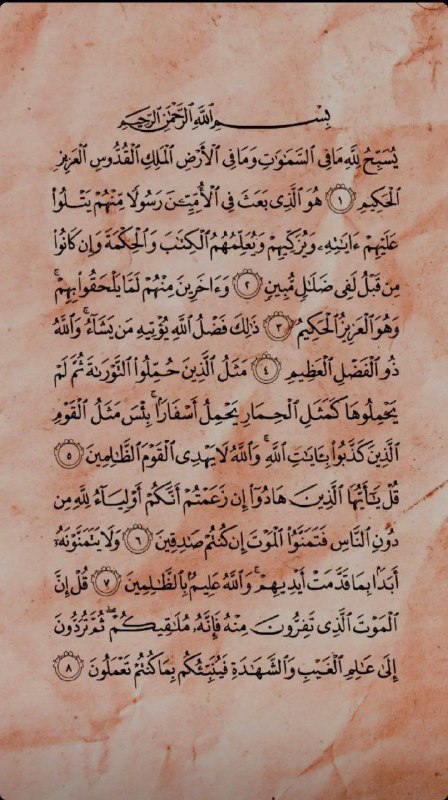 بِسْمِ اللَّهِ الرَّحْمَٰنِ الرَّحِيمِ
يُسَبِّحُ لِلَّهِ مَا فِي السَّمَٰوَٰتِ وَمَا فِي الْأَرْضِ الْمَلِكِ الْقُدُّوسِ الْعَزِيزِ
الْحَكِيمِ ١ هُوَ الَّذِي بَعَثَ فِي الْأُمِّيِّـنَ رَسُولًا مِنْهُمْ يَتْلُوا۟
عَلَيْهِمْ ءَايَٰتِهِۦ وَيُزَكِّيهِمْ وَيُعَلِّمُهُمُ الْكِتَٰبَ وَالْحِكْمَةَ وَإِن كَانُوا۟
مِن قَبْلُ لَفِي ضَلَٰلٍ مُّبِينٍ ٢ وَءَاخَرِينَ مِنْهُمْ لَمَّا يَلْحَقُوا۟ بِهِمْ ۚ
وَهُوَ الْعَزِيزُ الْحَكِيمُ ٣ ذَٰلِكَ فَضْلُ اللَّهِ يُؤْتِيهِ مَن يَشَآءُ ۚ وَاللَّهُ
ذُو الْفَضْلِ الْعَظِيمِ ٤ مَثَلُ الَّذِينَ حُمِّلُوا۟ التَّوْرَىٰةَ ثُمَّ لَمْ
يَحْمِلُوهَا كَمَثَلِ الْحِمَارِ يَحْمِلُ أَسْفَارًۢا ۚ بِئْسَ مَثَلُ الْقَوْمِ
الَّذِينَ كَذَّبُوا۟ بِـَٔايَٰتِ اللَّهِ ۚ وَاللَّهُ لَا يَهْدِي الْقَوْمَ الظَّٰلِمِينَ ٥
قُلْ يَٰٓأَيُّهَا الَّذِينَ هَادُوٓا۟ إِن زَعَمْتُمْ أَنَّكُمْ أَوْلِيَآءُ لِلَّهِ مِن
دُونِ النَّاسِ فَتَمَنَّوُا۟ الْمَوْتَ إِن كُنتُمْ صَٰدِقِينَ ٦ وَلَا يَتَمَنَّوْنَهُۥٓ
أَبَدًۢا بِمَا قَدَّمَتْ أَيْدِيهِمْ ۚ وَاللَّهُ عَلِيمٌۢ بِالظَّٰلِمِينَ ٧ قُلْ إِنَّ
الْمَوْتَ الَّذِي تَفِرُّونَ مِنْهُ فَإِنَّهُۥ مُلَٰقِيكُمْ ۖ ثُمَّ تُرَدُّونَ
إِلَىٰ عَٰلِمِ الْغَيْبِ وَالشَّهَٰدَةِ فَيُنَبِّئُكُم بِمَا كُنتُمْ تَعْمَلُونَ ٨